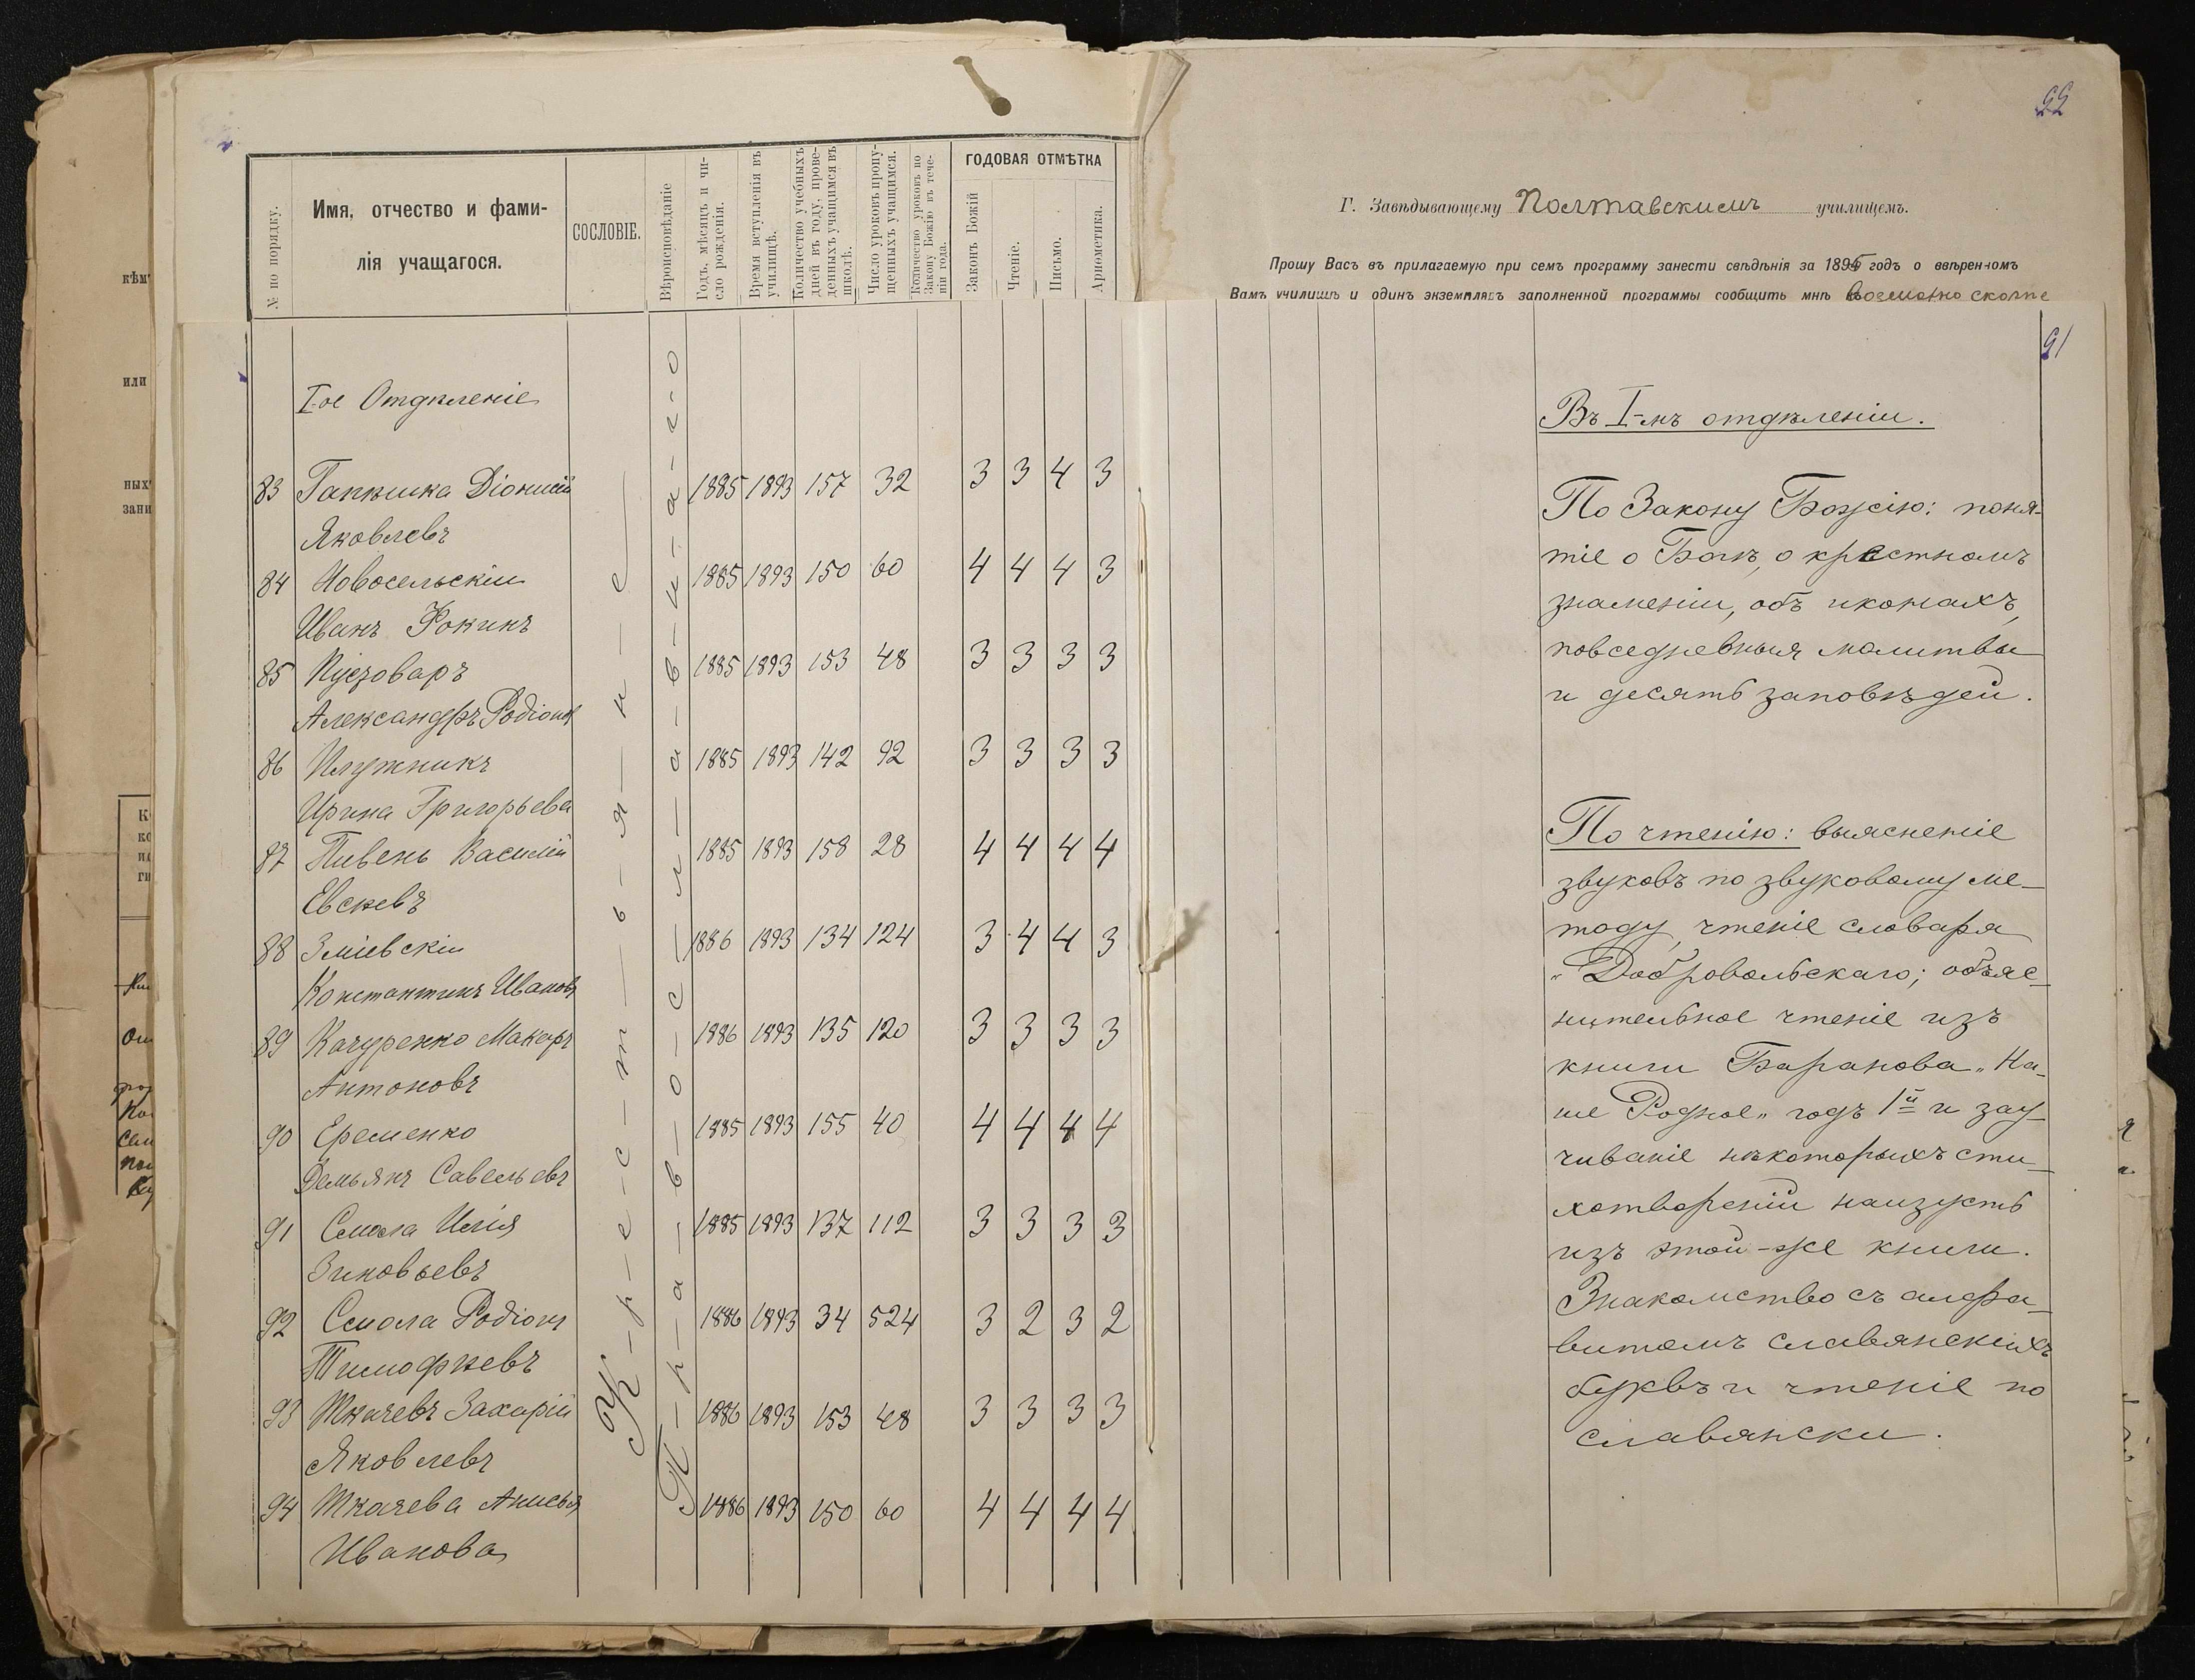 22
№ по порядку.
Имя, отчество и фами-
лія учащагося.
СОСЛОВІЕ.
Вѣроисповѣданіе
Годъ, мѣсяцъ и чи-
сло рожденія.
Время вступленія въ
училищѣ.
Количество учебныхъ
дней въ году, прове-
денныхъ учащимся въ
школѣ.
Число уроковъ пропу-
щенныхъ учащимся.
Количество уроковъ по
Закону Божію въ тече-
ніи года.
ГОДОВАЯ ОТМѢТКА
Законъ Божій
Чтеніе.
Письмо.
Ариѳметика.
I-ое Отдѣленіе
К-р-е-с-т-ь-я-н-е
П-р-а-в-о-с-л-а-в-н-а-г-о
83 Гапкика Діонисій 1885 1893 157 32 3 3 4 3
Яковлевъ
84 Новосельскій 1885 1893 150 60 4 4 4 3
Иванъ Фокинъ
85 1885 1893 153 48 3 3 3 3
Александръ Родіонъ
86 Плужникъ 1885 1893 142 92 3 3 3 3
Ирина Григорьева
87 Пивень Василій 1885 1893 158 28 4 4 4 4
Евсѣевъ
88 Зміевскій 1886 1893 134 124 3 4 4 3
Константинъ Ивановъ
89 Качуренко Макаръ 1886 1893 135 120 3 3 3 3
Антоновъ
90 Еременко 1885 1893 155 40 4 4 4 4
Демьянъ Савельевъ
91 Смола Илія 1885 1893 137 112 3 3 3 3
Зиновьевъ
92 Смола Родіонъ 1886 1893 34 524 3 2 3 2
Тимофѣевъ
93 Ткачевъ Захарій 1886 1893 153 48 3 3 3 3
Яковлевъ
94 Ткачева Анисья 1886 1893 150 60 4 4 4 4
Иванова
Г. Завѣдывающему Полтавскимъ училищемъ.
Прошу Васъ въ прилагаемую при семъ программу занести свѣдѣнія за 1895 годъ о ввѣренномъ
Вамъ училищѣ и одинъ экземпляръ заполненной программы сообщить мнѣ возможно скорѣе
91
Въ I-мъ отдѣленіи.
По Закону Божію: поня-
тіе о Богѣ, о крестномъ
знаменіи, объ иконахъ,
повседневныя молитвы
и десять заповѣдей.
По чтенію: выясненіе
звуковъ по звуковому ме-
тоду, чтеніе словаря
„Добровольскаго; объяс-
нительное чтеніе изъ
книги Баранова „На-
ше Родное„ годъ 1й и зау-
чиваніе нѣкоторыхъ сти-
хотвореній наизусть
изъ этой-же книги.
Знакомство съ алфа-
витомъ славянскихъ
буквъ и чтеніе по
славянски.